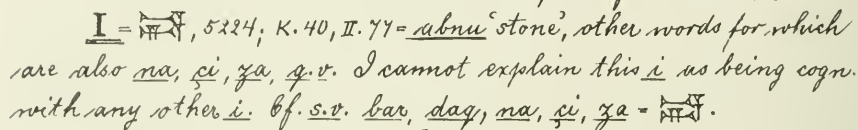 I = 𒉌, 5224; K. 40, II. 77 = abnu 'stone', other words for which
are also na, çi, za, q.v. I cannot explain this i as being cogn.
with any other i. Cf. s.v. bar, dag, na, çi, za =